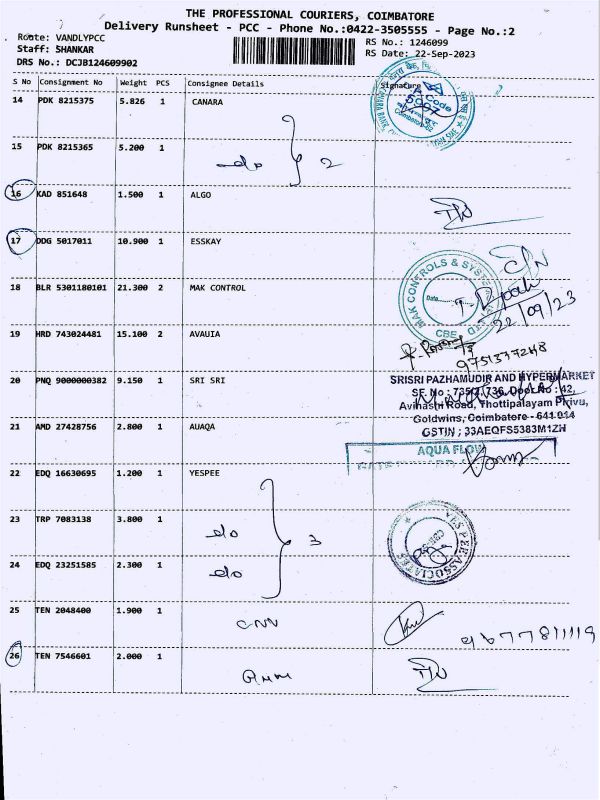 THE PROFESSIONAL COURIERS, COIMBATORE
Delivery Runsheet - PCC - Phone No.:0422-3505555 - Page No.:2
Route: VANDLYPCC
RS No.: 1246099
Staff: SHANKAR
RS Date: 22-Sep-2023
DRS No.: DCJB124609902
S No Consignment No Weight PCS Consignee Details Signature
14 PDK 8215375 5.826 1 CANARA
Code
5097
15 PDK 8215365 5.200 1
do } 2
16 KAD 851648 1.500 1 ALGO
17 DDG 5017011 10.900 1 ESSKAY
18 BLR 5301180101 21.300 2 MAK CONTROL
MAK CONTROLS & SYSTEMS
Date
CBE
22/09/23
19 HRD 743024481 15.100 2 AVAUIA
9751377248
20 PNQ 9000000382 9.150 1 SRI SRI
SRISRI PAZHAMUDIR AND HYPERMARKET
SF. No : 735/1, 736, Door No : 42,
Avinashi Road, Thottipalayam Pirivu,
Goldwins, Coimbatore - 641 014
GSTIN : 33AEQFS5383M1ZH
21 AMD 27428756 2.800 1 AUAQA
AQUA FLOW
22 EDQ 16630695 1.200 1 YESPEE
23 TRP 7083138 3.800 1
do } 3
YES PEE ASSOCIATES
24 EDQ 23251585 2.300 1
do
25 TEN 2048400 1.900 1
CNN
9677811119
26 TEN 7546601 2.000 1